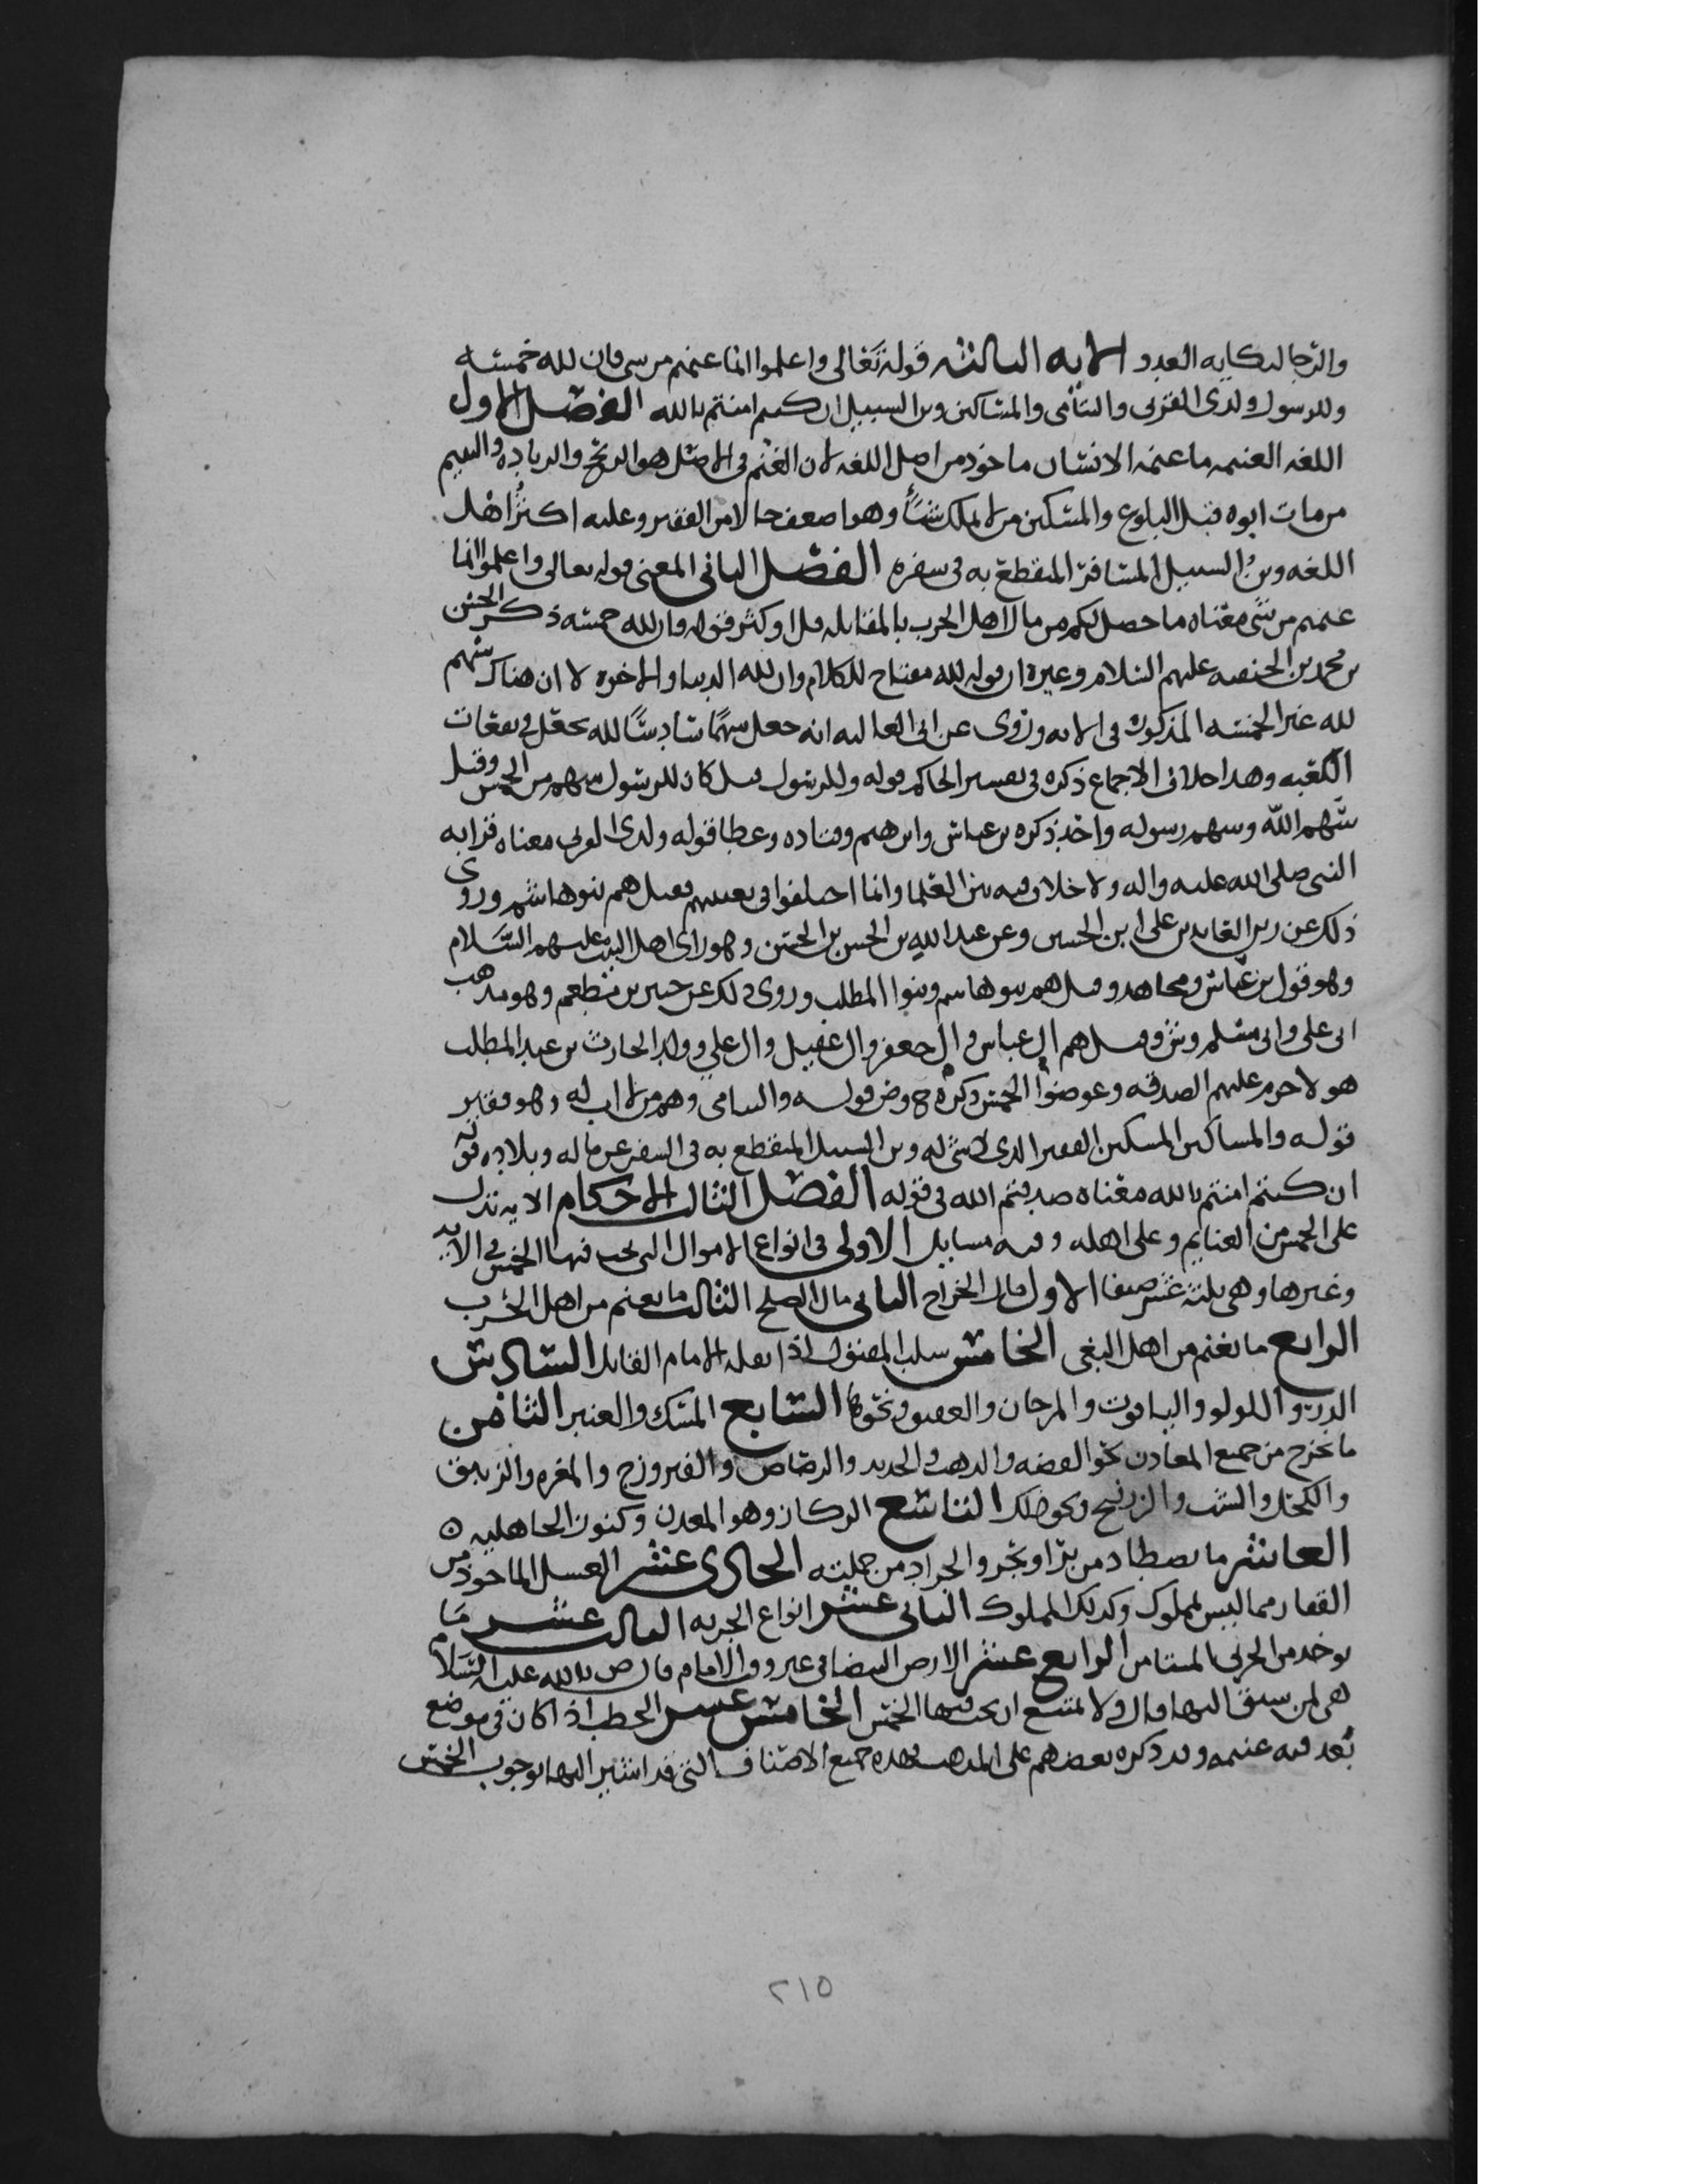 والرجا لنكايه العدو الايه الثالثه قوله تعالى واعلموا انما غنمتم من شي فان لله خمسه
وللرسول ولذي القربى واليتامى والمساكين وبن السبيل ان كنتم امنتم بالله الفصل الاول
اللغه الغنيمه ما غنمه الانسان ماخوذ من اصل اللغه لان الغنم في الاصل هو الربح والزياده واليتيم
من مات ابوه قبل البلوغ والمسكين من لا يملك شيئا وهو اضعف حالا من الفقير وعليه اكثر اهل
اللغه وبن السبيل المسافر المنقطع به في سفره الفصل الثاني المعنى قوله تعالى واعلموا انما
غنمتم من شي معناه ما حصل لكم من مال اهل الحرب بالمقاتله قل او كثر قوله فان لله خمسه ذكر الحسن
بن محمد بن الحنفيه عليهم السلام وغيره ان قوله لله مفتاح للكلام وان لله الدنيا والاخره لا ان هناك سهم
لله غير الخمسه المذكوره في الايه وروى عن ابي العاليه انه جعل سهما سادسا لله يجعل في نفقات
الكعبه وهذا خلاف الاجماع ذكره في تفسير الحاكم قوله وللرسول قيل كان للرسول سهم من الخمس وقيل
سهم الله وسهم رسوله واحد ذكره بن عباس وابرهيم وقتاده وعطا قوله ولذي القربى معناه قرابه
النبي صلى الله عليه واله ولا خلاف فيه بين العلما وانما اختلفوا في تعيينهم فقيل هم بنو هاشم وروى
ذلك عن زين العابدين علي ابن الحسين وعن عبد الله بن الحسن بن الحسن وهو راي اهل البيت عليهم السلام
وهو قول بن عباس ومجاهد وقيل هم بنو هاشم وبنوا المطلب وروى ذلك عن جبير بن مطعم وهو مذهب
ابي علي وابي مسلم وش وقيل هم ال عباس وال جعفر وال عقيل وال علي وولد الحارث بن عبد المطلب
هولا حرم عليهم الصدقه وعوضوا الخمس ذكره ح وض قوله واليتامى وهم من لا اب له وهو فقير
قوله والمساكين المسكين الفقير الذي لا شي له وبن السبيل المنقطع به في السفر عن ماله وبلاده قوله
ان كنتم امنتم بالله معناه صدقتم الله في قوله الفصل الثالث الاحكام الايه تدل
على الخمس من الغنايم وعلى اهله وفيه مسايل الاولى في انواع الاموال التي يجب فيها الخمس في الايه
وغيرها وهي ثلثة عشر صنفا الاول مال الخراج الثاني مال الصلح الثالث ما يغنم من اهل الحرب
الرابع ما يغنم من اهل البغي الخامس سلب المقتول اذا نفله الامام القاتل السادس
الدر واللولو والياقوت والمرجان والعقيق ونحوها السابع المسك والعنبر الثامن
ما يخرج من جميع المعادن نحو الفضه والذهب والحديد والرصاص والفيروزج والمغره والزيبق
والكحل والشب والزرنيخ ونحو ذلك التاسع الركاز وهو المعدن وكنوز الجاهليه ه
العاشر ما يصطاد من بر او بحر والجراد من جملته الحادي عشر العسل الماخوذ من
القفار مما ليس لمملوك وكذلك المملوك الثاني عشر انواع الجزيه الثالث عشر ما
يوخذ من الحربي المستامن الرابع عشر الارض البيضا في غير ووالامام قال ص بالله عليه السلام
هي لمن سبق اليها وقال ولا يمتنع ان يجب فيها الخمس الخامس عشر الحطب اذا كان في موضع
تعد فيه غنيمه وقد ذكره بعضهم على المذهب فهذه جميع الاصناف التي قد اشير اليها بوجوب الخمس
٢١٥